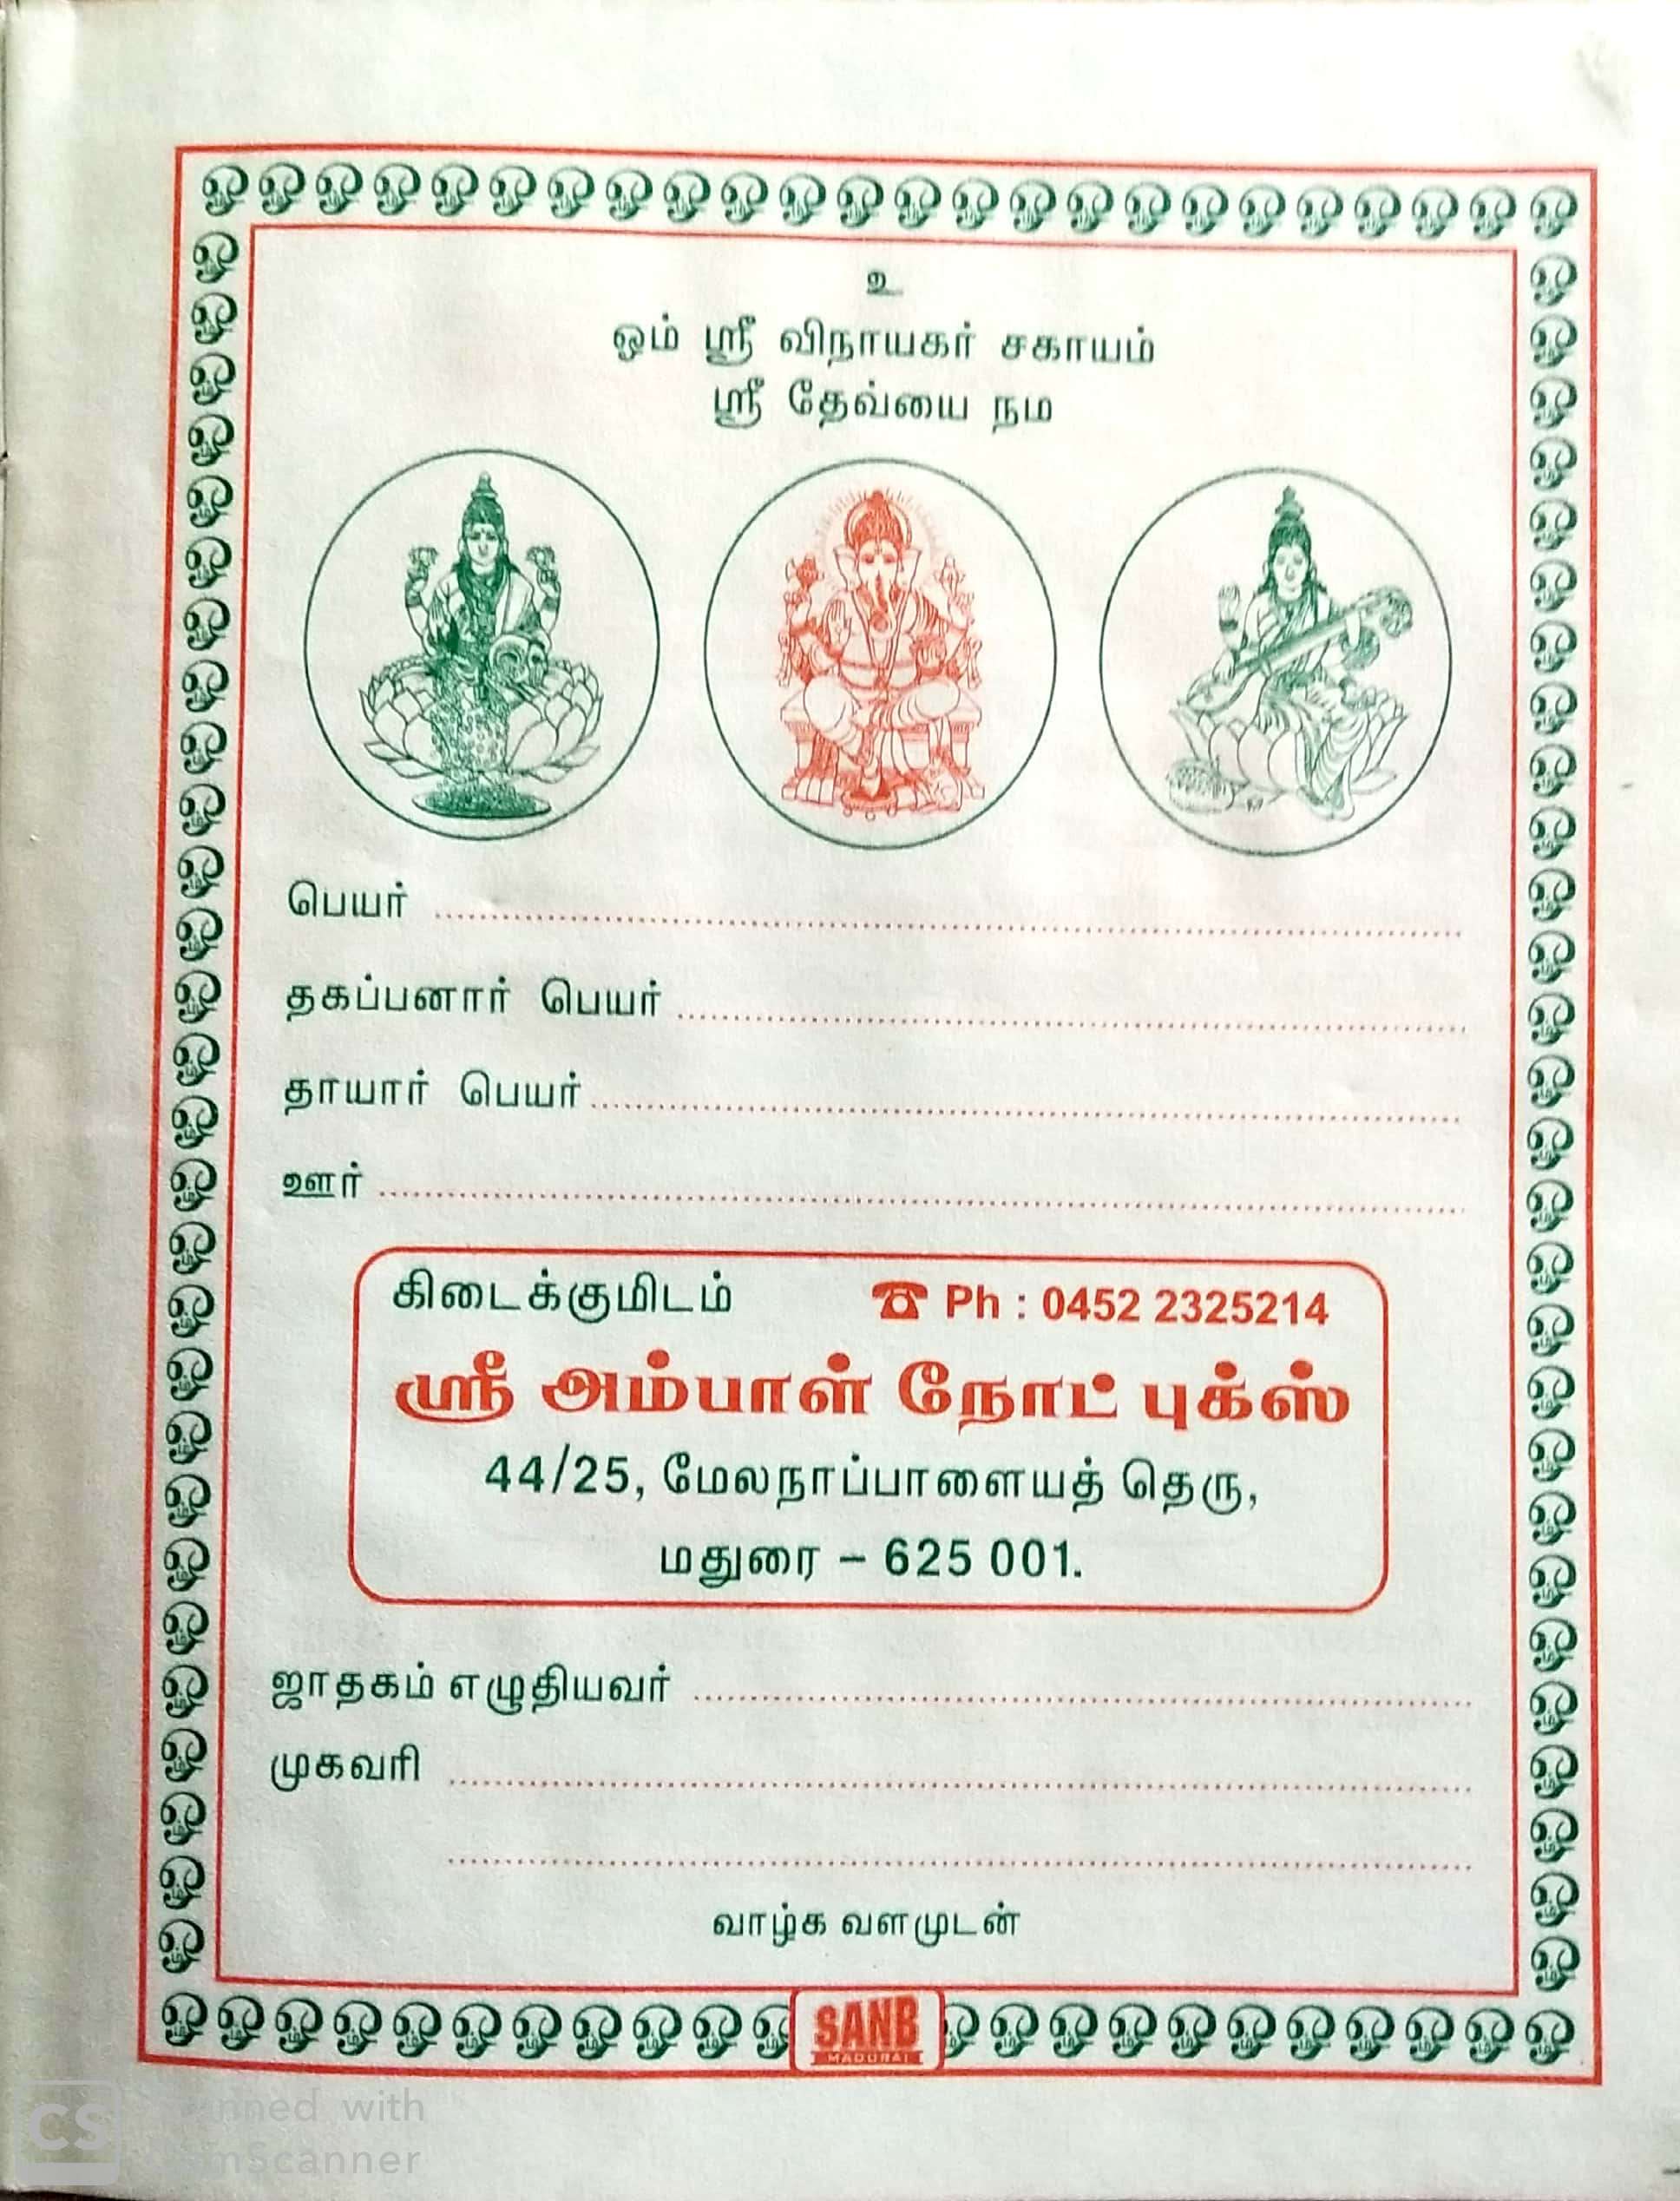 உ
ஓம் ஸ்ரீ விநாயகர் சகாயம்
ஸ்ரீ தேவ்யை நம
பெயர்
தகப்பனார் பெயர்
தாயார் பெயர்
ஊர்
கிடைக்குமிடம் ☎ Ph : 0452 2325214
ஸ்ரீ அம்பாள் நோட் புக்ஸ்
44/25, மேலநாப்பாளையத் தெரு,
மதுரை – 625 001.
ஜாதகம் எழுதியவர்
முகவரி
வாழ்க வளமுடன்
SANB
MADURAI
CS
with